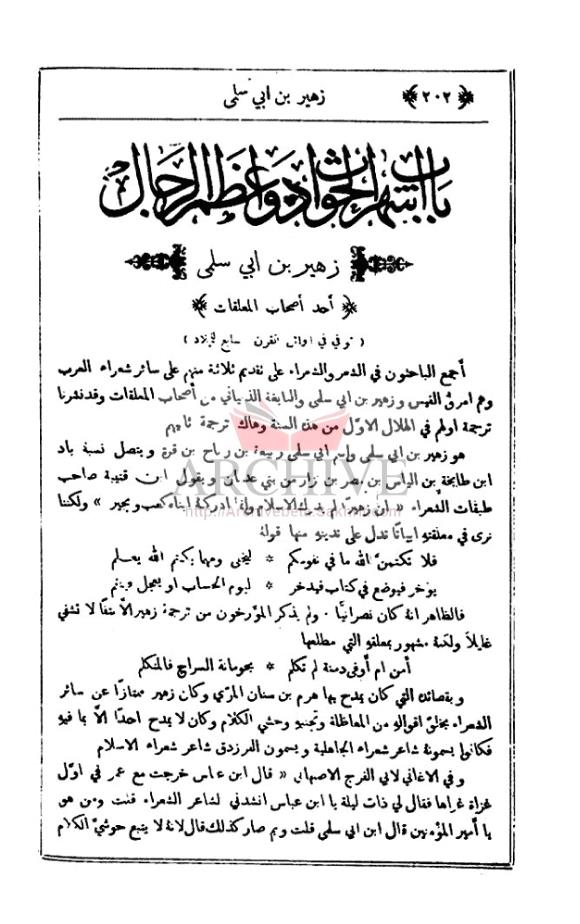 ﴿ ٢٠٢ ﴾ زهير بن ابي سلمى
باب اشهر الحوادث واعظم الرجال
زهير بن ابي سلمى
﴿ أحد أصحاب المعلقات ﴾
( توفي في اوائل القرن السابع للميلاد )
أجمع الباحثون في الشعر والشعراء على تقديم ثلاثة منهم على سائر شعراء العرب
وهم امرؤ القيس وزهير بن ابي سلمى والنابغة الذبياني من أصحاب المعلقات وقد نشرنا
ترجمة اولهم في الهلال الاوّل من هذه السنة وهاك ترجمة ثانيهم
هو زهير بن ابي سلمى واسم ابي سلمى ربيعة بن رباح بن قرة ويتصل نسبهُ باد
ابن طابخة بن الياس بن مضر بن نزار من بني عدنان ويقول ابن قتيبة صاحب
طبقات الشعراء « ان زهيرًا لم يدرك الاسلام وانما ادركهُ ابناه كعب وبجير » ولكننا
نرى في معلقتهِ ابياتًا تدل على تدينهِ منها قولهُ
فلا تكتمنّ الله ما في نفوسكم * ليخفى ومهما يكتم الله يعلم
يؤخر فيوضع في كتاب فيدخر * ليوم الحساب او يعجل وينقم
فالظاهر انهُ كان نصرانيًّا . ولم يذكر المؤرخون من ترجمة زهير الاّ نتفًا لا تشفي
غليلاً ولكنهُ مشهور بمعلقتهِ التي مطلعها
أمن ام أوفى دمنة لم تكلم * بحومانة الدراج فالمتثلم
وبقصائدهِ التي كان يمدح بها هرم بن سنان المرّي وكان زهير ممتازًا عن سائر
الشعراء بخلوّ اقوالهِ من المعاظلة وتجنبهِ وحشي الكلام وكان لا يمدح احدًا الاّ بما فيهِ
فكانوا يسمونهُ شاعر شعراء الجاهلية ويسمون الفرزدق شاعر شعراء الاسلام
وفي الاغاني لابي الفرج الاصبهاني « قال ابن عباس خرجت مع عمر في اوّل
غزاة غزاها فقال لي ذات ليلة يا ابن عباس انشدني لشاعر الشعراء قلت ومن هو
يا أمير المؤمنين قال ابن ابي سلمى قلت وبم صار كذلك قال لانهُ لا يتبع حوشيّ الكلام
ARCHIVE